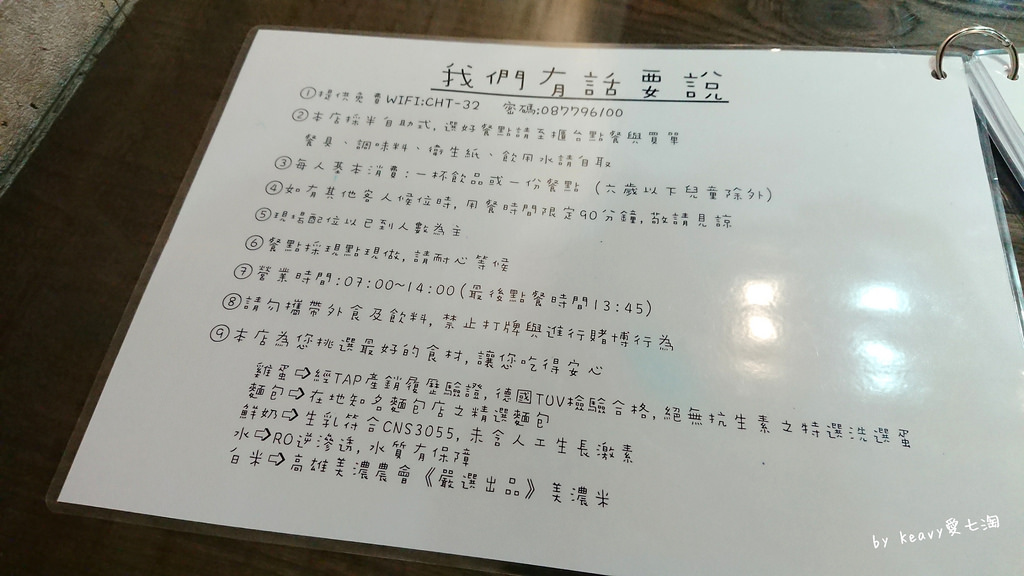 我們有話要說
①提供免費WIFI:CHT-32 密碼:087796100
②本店採半自助式,選好餐點請至櫃台點餐與買單
餐具、調味料、衛生紙、飲用水請自取
③每人基本消費:一杯飲品或一份餐點(六歲以下兒童除外)
④如有其他客人候位時,用餐時間限定90分鐘,敬請見諒
⑤現場配位以已到人數為主
⑥餐點採現點現做,請耐心等候
⑦營業時間:07:00~14:00(最後點餐時間13:45)
⑧請勿攜帶外食及飲料,禁止打牌與進行賭博行為
⑨本店為您挑選最好的食材,讓您吃得安心
雞蛋⇨經TAP產銷履歷驗證,德國TUV檢驗合格,絕無抗生素之特選洗選蛋
麵包⇨在地知名麵包店之精選麵包
鮮奶⇨生乳符合CNS3055,未含人工生長激素
水⇨RO逆滲透,水質有保障
白米⇨高雄美濃農會《嚴選出品》美濃米
by keavy愛七淘